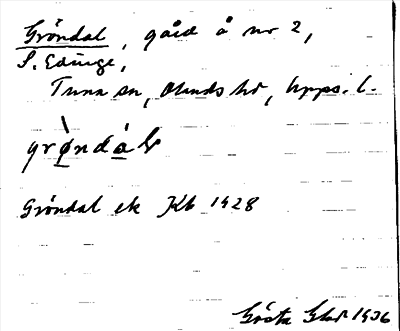 Gröndal, gård å nr 2,
S. Edinge,
Tuna sn, Olands hd, Upps. l.
grø̀ndál
Gröndal ek Kb 1928
Gösta Gbr 1936